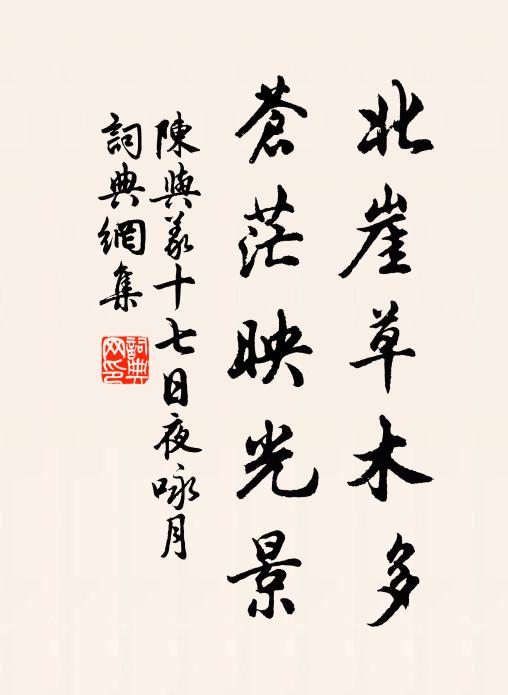 北崖草木多
蒼茫映光景
陳與義十七日夜咏月
詞典網集
詞典網印